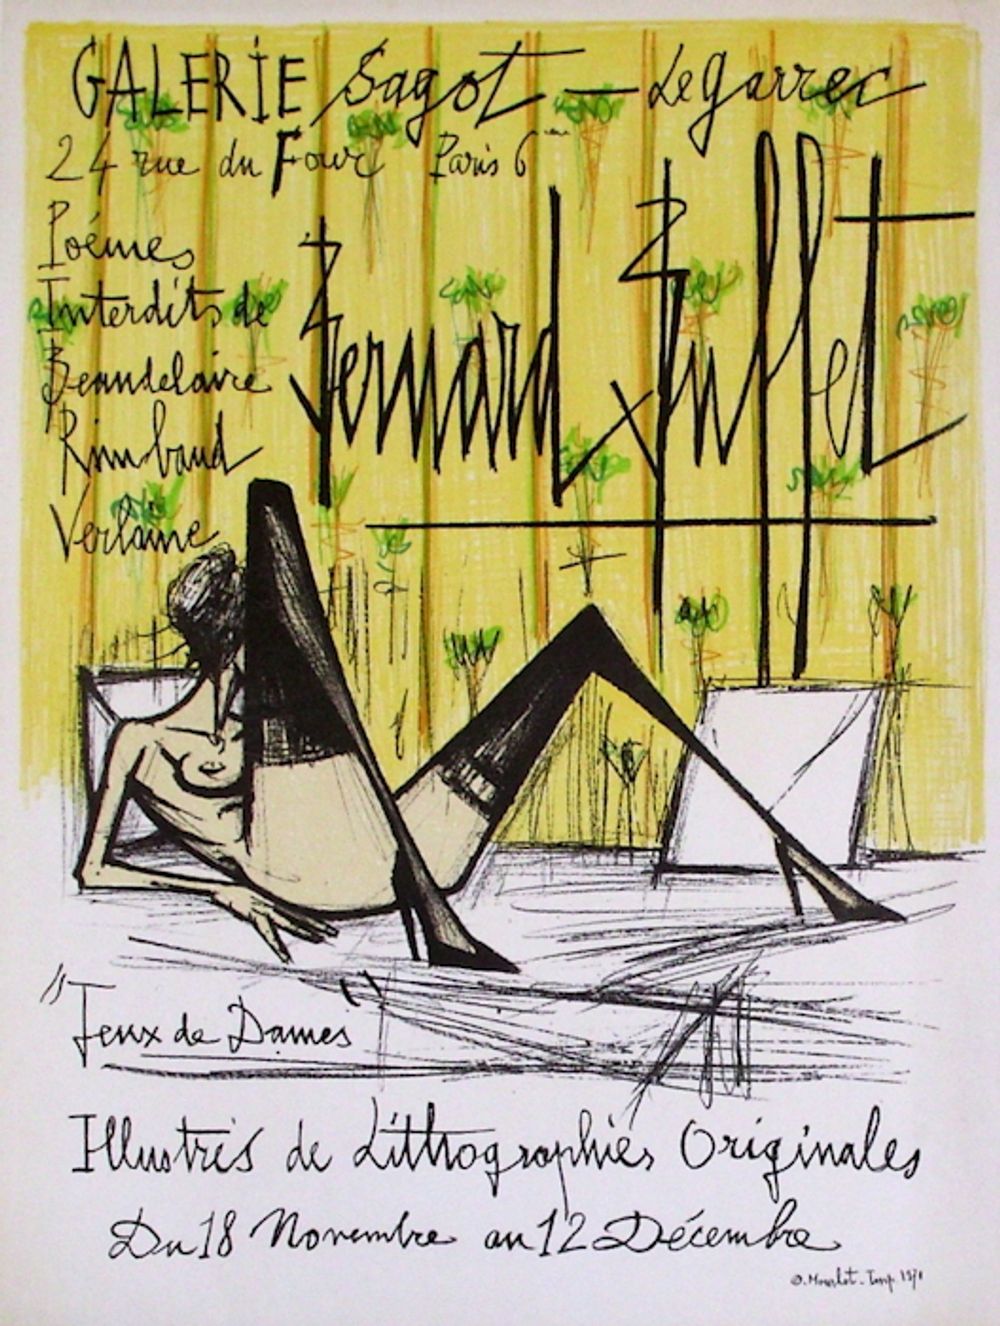 GALERIE Sagot - Le Garrec
24 rue du Four Paris 6ème
Poémes
Interdits de
Beaudelaire
Rimbaud
Verlaine
Bernard Buffet
"Jeux de Dames"
Illustrés de Lithographies Originales
Du 18 Novembre au 12 Décembre
© Mourlot - Imp. 1970